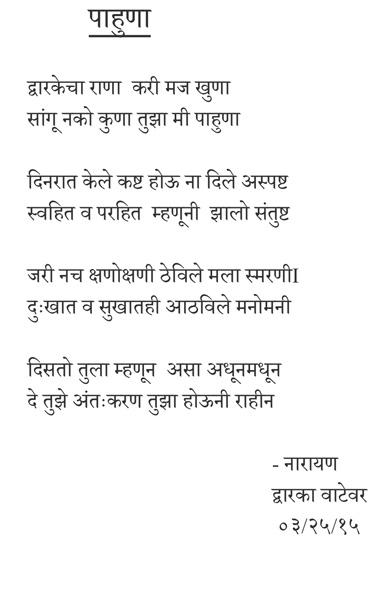 पाहुणा
द्वारकेचा राणा करी मज खुणा
सांगू नको कुणा तुझा मी पाहुणा
दिनरात केले कष्ट होऊ ना दिले अस्पष्ट
स्वहित व परहित म्हणूनी झालो संतुष्ट
जरी नच क्षणोक्षणी ठेविले मला स्मरणी।
दुःखात व सुखातही आठविले मनोमनी
दिसतो तुला म्हणून असा अधूनमधून
दे तुझे अंतःकरण तुझा होऊनी राहीन
- नारायण
द्वारका वाटेवर
०३/२५/१५